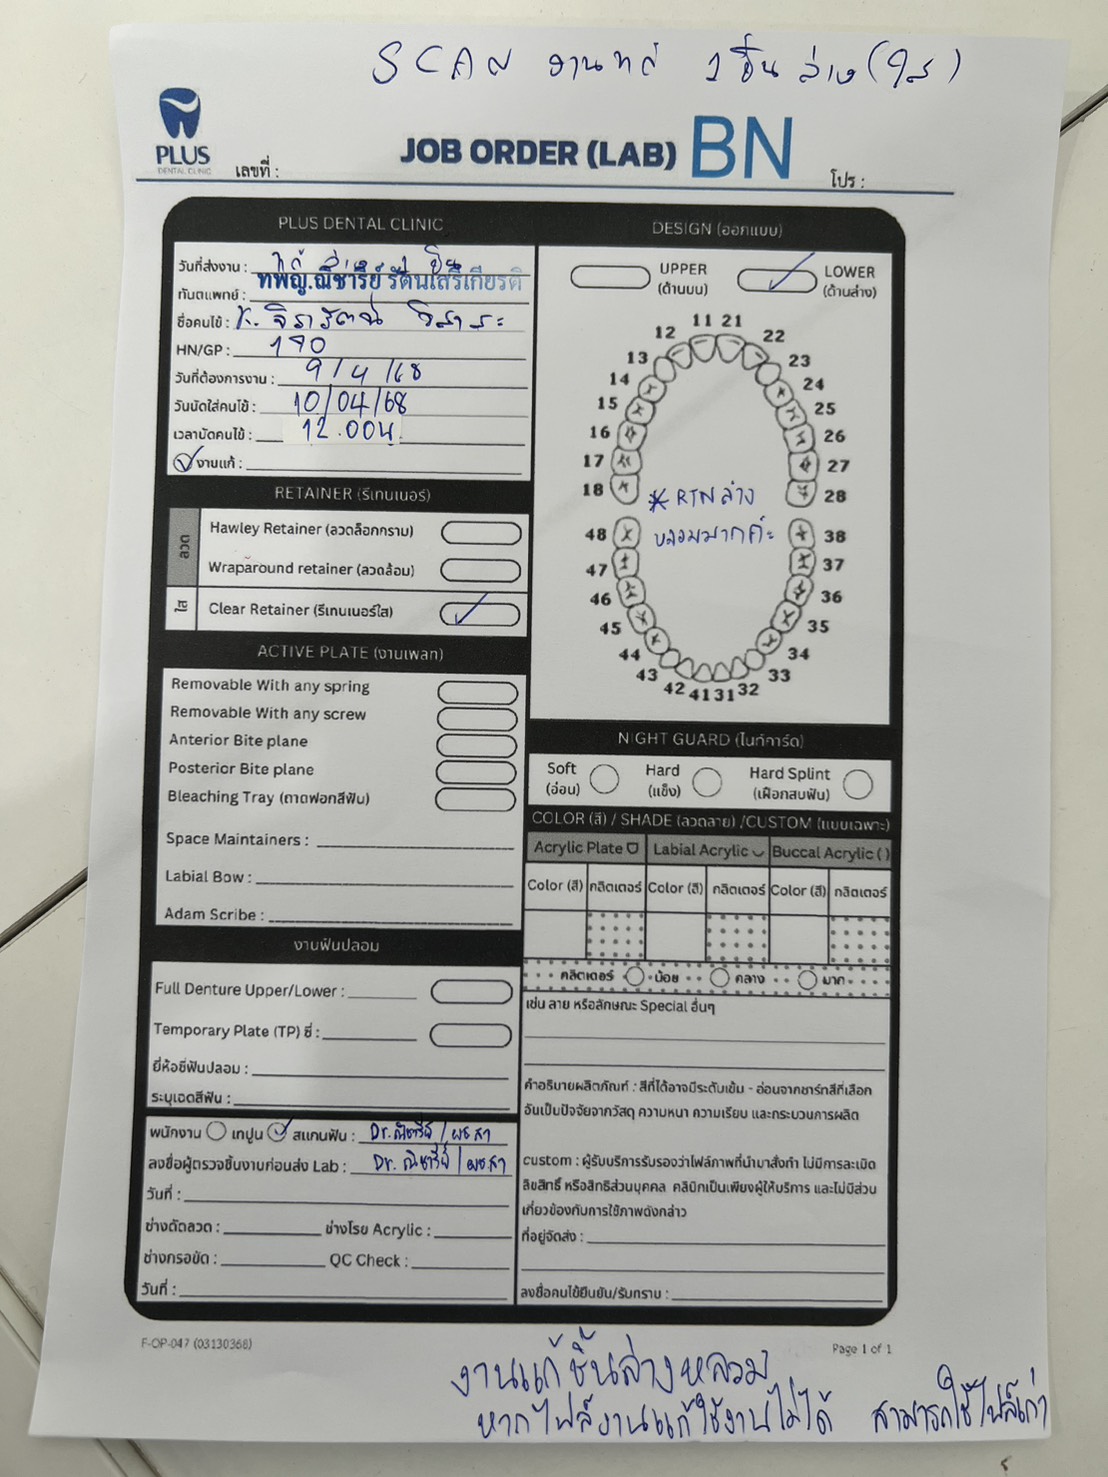 SCAN งานแก้ 1 ชิ้น ล่าง (ใส)
PLUS
DENTAL CLINIC
เลขที่ :
JOB ORDER (LAB) BN
โปร :
PLUS DENTAL CLINIC
วันที่ส่งงาน : แก้ ล่าง 1 ชิ้น
ทันตแพทย์ : ทพญ.ณิชารีย์ รัตนเสรีเกียรติ
ชื่อคนไข้ : K. จิรารัตน์
HN/GP : 190
วันที่ต้องการงาน : 9/4/68
วันนัดใส่คนไข้ : 10/04/68
เวลานัดคนไข้ : 12.00น.
งานแก้ :
RETAINER (รีเทนเนอร์)
ลวด
Hawley Retainer (ลวดล็อกกราม)
Wraparound retainer (ลวดล้อม)
ใส
Clear Retainer (รีเทนเนอร์ใส)
ACTIVE PLATE (งานเพลท)
Removable With any spring
Removable With any screw
Anterior Bite plane
Posterior Bite plane
Bleaching Tray (ถาดฟอกสีฟัน)
Space Maintainers :
Labial Bow :
Adam Scribe :
งานฟันปลอม
Full Denture Upper/Lower :
Temporary Plate (TP) ซี่ :
ยี่ห้อซี่ฟันปลอม :
ระบุเฉดสีฟัน :
พนักงาน เทปูน สแกนฟัน : Dr.ณิชารีย์ /
ลงชื่อผู้ตรวจชิ้นงานก่อนส่ง Lab : Dr. ณิชารีย์ /
วันที่ :
ช่างดัดลวด : ช่างโรย Acrylic :
ช่างกรอขัด : QC Check :
วันที่ :
DESIGN (ออกแบบ)
UPPER
(ด้านบน)
LOWER
(ด้านล่าง)
11 21
12 22
13 23
14 24
15 25
16 26
17 27
18 28
*RTN ล่าง
หลวมมากค่ะ
48 38
47 37
46 36
45 35
44 34
43 33
42 41 31 32
NIGHT GUARD (ไนท์การ์ด)
Soft
(อ่อน)
Hard
(แข็ง)
Hard Splint
(เฝือกสบฟัน)
COLOR (สี) / SHADE (ลวดลาย) /CUSTOM (แบบเฉพาะ)
Acrylic Plate Labial Acrylic Buccal Acrylic ( )
Color (สี) กลิตเตอร์ Color (สี) กลิตเตอร์ Color (สี) กลิตเตอร์
กลิตเตอร์ น้อย กลาง มาก
เช่น ลาย หรือลักษณะ Special อื่นๆ
คำอธิบายผลิตภัณฑ์ : สีที่ได้อาจมีระดับเข้ม - อ่อนจากชาร์ทสีที่เลือก
อันเป็นปัจจัยจากวัสดุ ความหนา ความเรียบ และกระบวนการผลิต
custom : ผู้รับบริการรับรองว่าไฟล์ภาพที่นำมาสั่งทำ ไม่มีการละเมิด
ลิขสิทธิ์ หรือสิทธิส่วนบุคคล คลินิกเป็นเพียงผู้ให้บริการ และไม่มีส่วน
เกี่ยวข้องกับการใช้ภาพดังกล่าว
ที่อยู่จัดส่ง :
ลงชื่อคนไข้ยืนยัน/รับทราบ :
F-OP-047 (03130368)
Page 1 of 1
งานแก้ ชิ้นล่างหลวม
หากไฟล์งานแก้ใช้งานไม่ได้ สามารถใช้ไฟล์เก่า